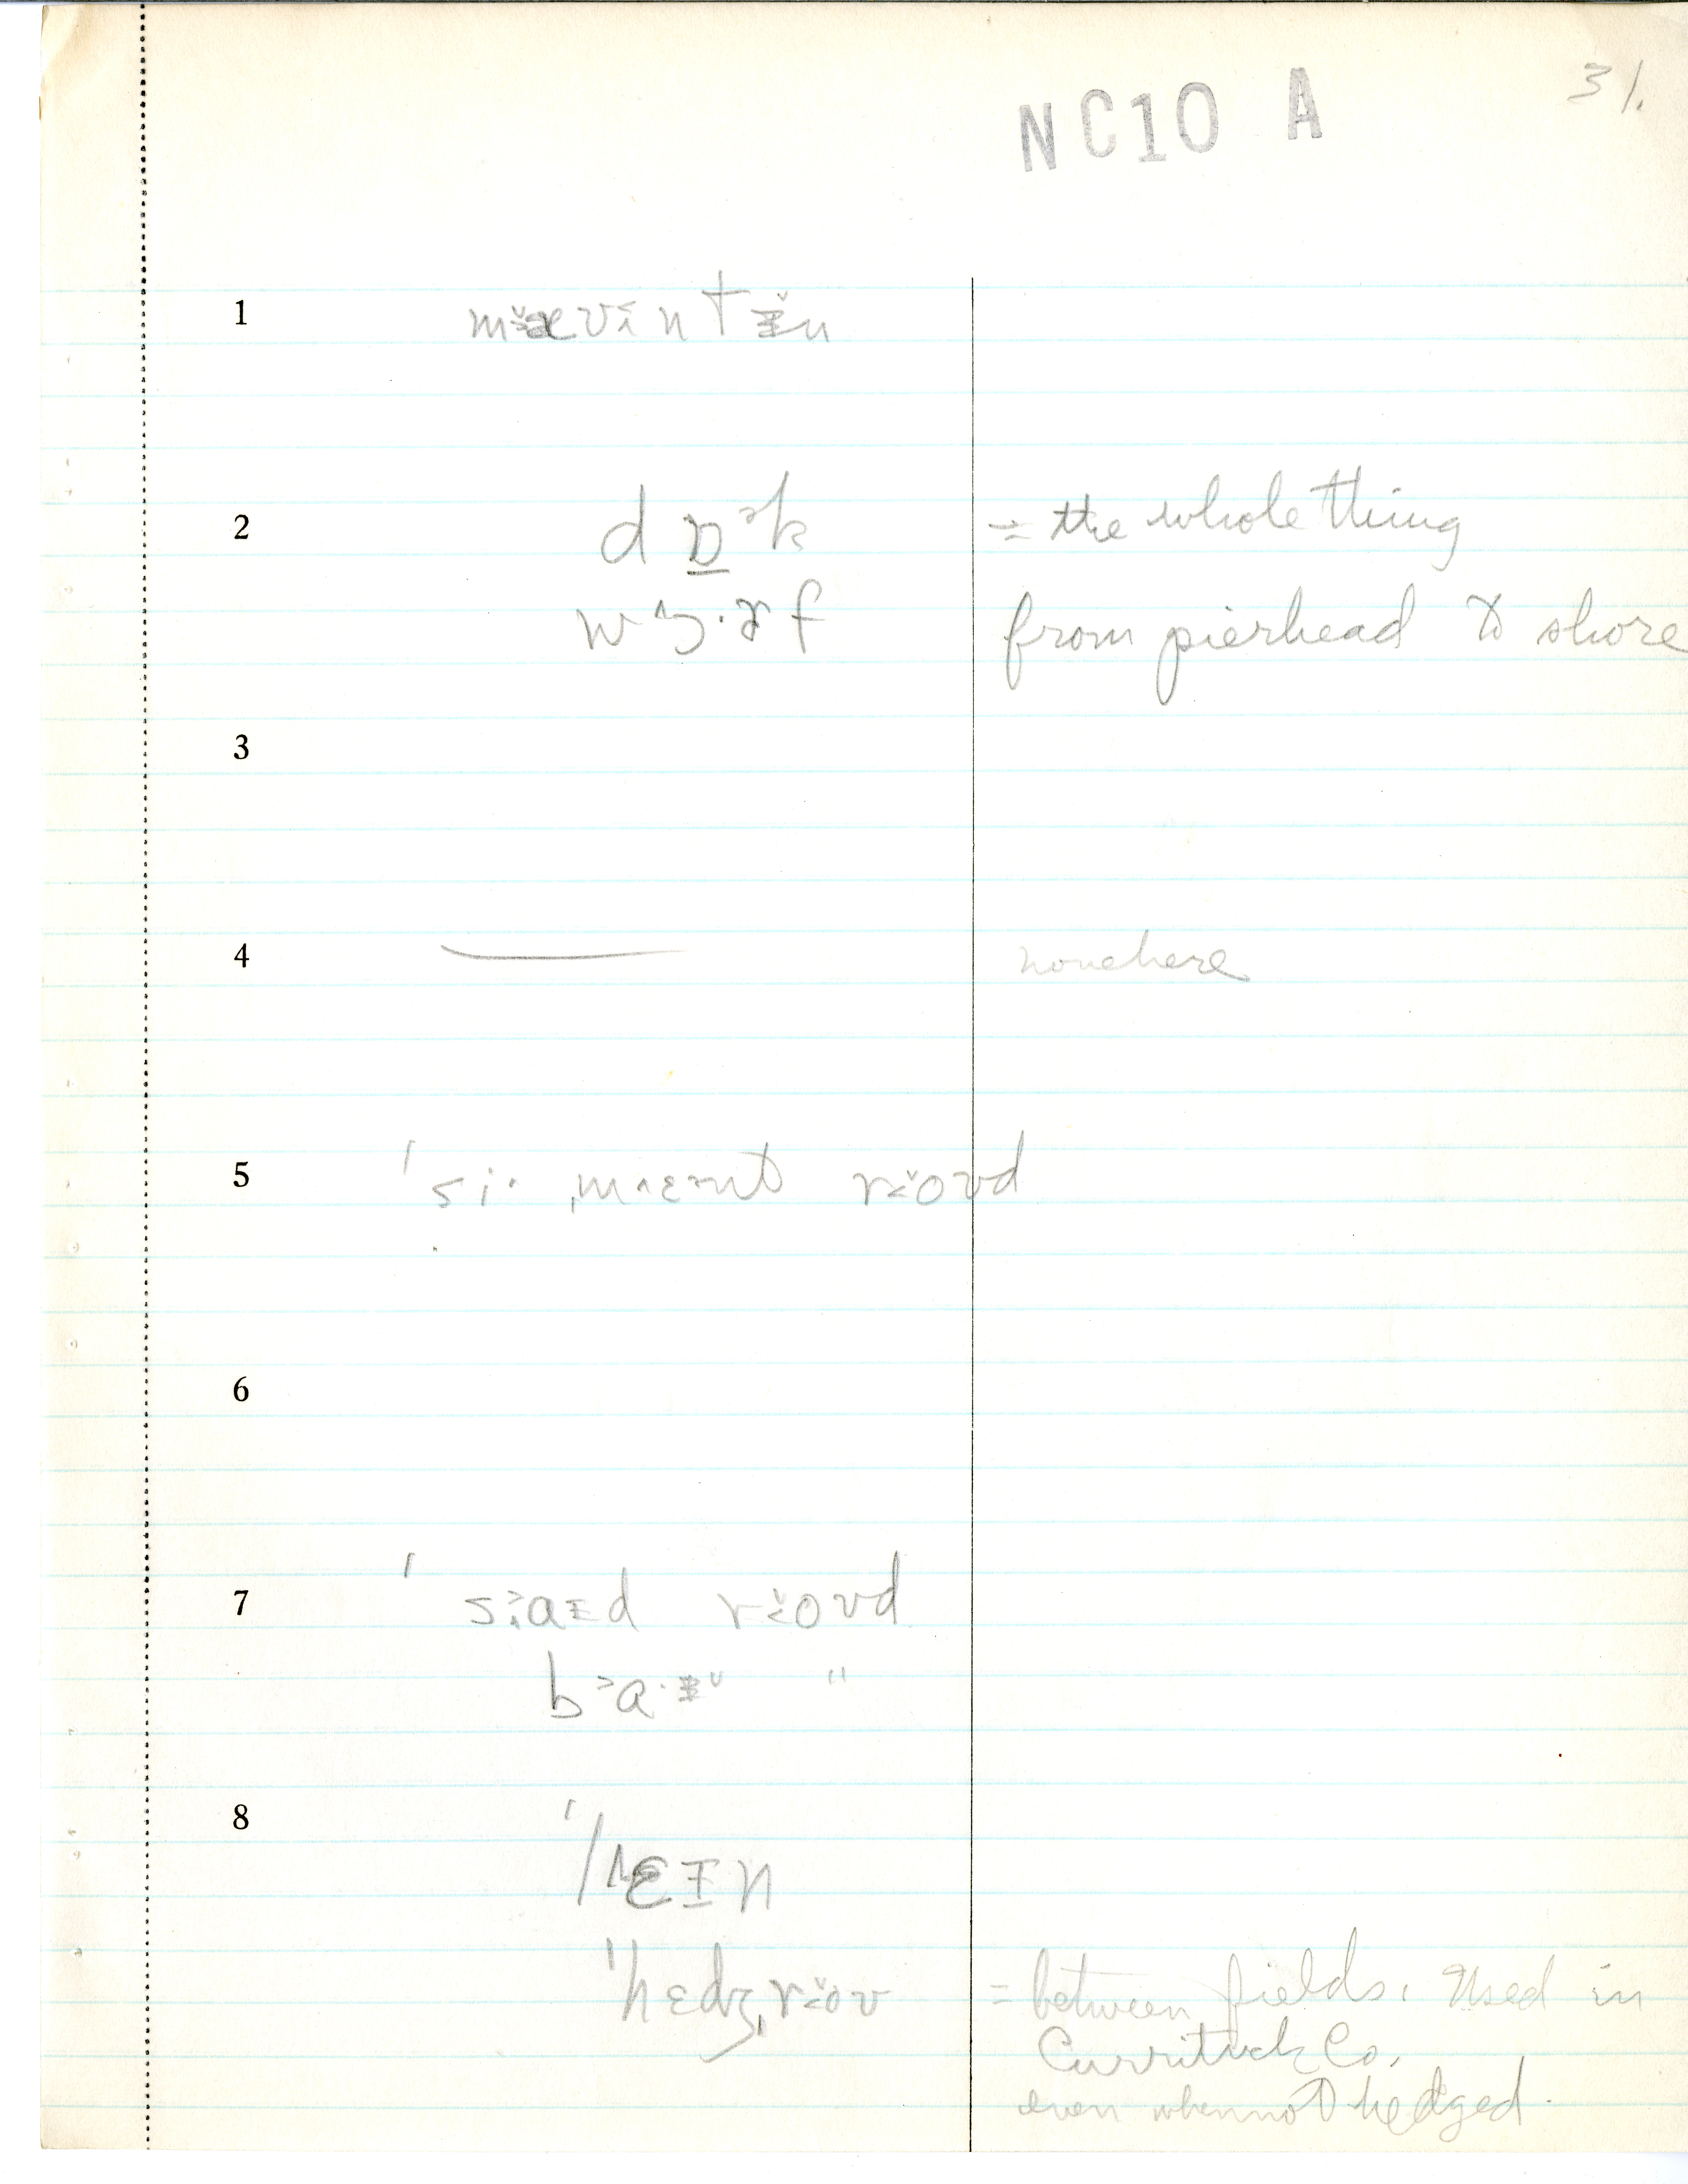 NC10 A
31.
1 mæ̆vɪ̆ntɪ̆n
2 dɒᵊk = the whole thing
wɔ·ɚf from pierhead to shore
3
4 — none here
5 ˈsi· ˌmɛənt roʊd
6
7 ˈsaɪd roʊd
ba·ɪ "
8 ˈlɛɪn
ˈhɛdʒˌroʊ = between fields. Used in
Currituck Co.
even when not hedged.